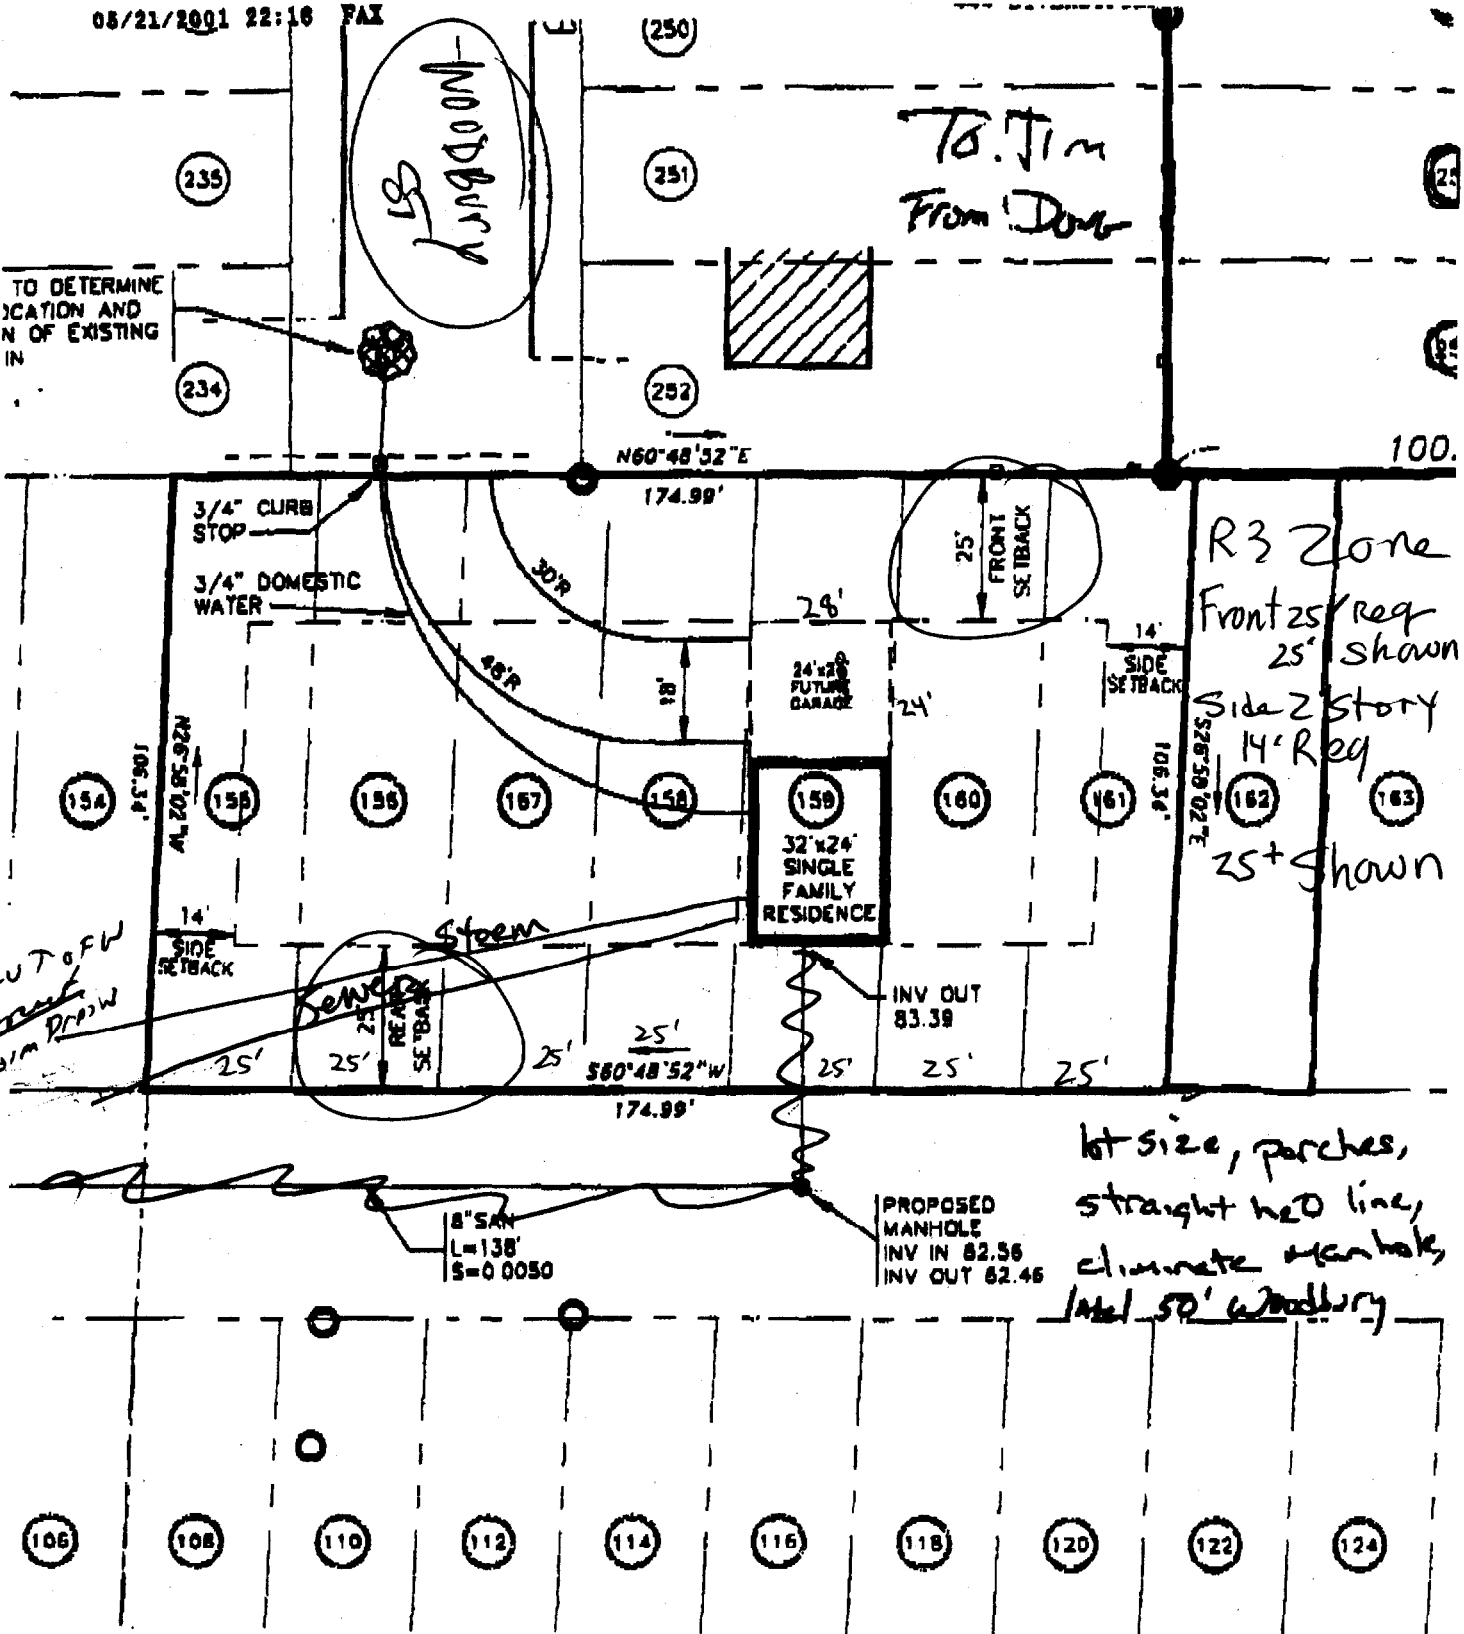 05/21/2001 22:16 FAX
250
235
251
Woodbury
St
To: Jim
From: Doug
25
TO DETERMINE
OCATION AND
N OF EXISTING
IN
234
252
N60°48'52"E
174.99'
100.
3/4" CURB
STOP
3/4" DOMESTIC
WATER
30'R
48'R
18'
28'
24'x28'
FUTURE
GARAGE
24'
25'
FRONT
SETBACK
14'
SIDE
SETBACK
R3 Zone
Front 25' req
25' shown
Side 2 Story
14' Req
25+ Shown
N26°58'02"W
106.34'
S26°58'02"E
106.34'
154
155
156
157
158
159
160
161
162
163
32'x24'
SINGLE
FAMILY
RESIDENCE
14'
SIDE
SETBACK
Storm
Sewer
25'
REAR
SETBACK
INV OUT
83.39
25'
25'
25'
25'
25'
25'
25'
S60°48'52"W
174.99'
8" SAN
L=138'
S=0.0050
PROPOSED
MANHOLE
INV IN 82.56
INV OUT 82.46
lot size, porches,
straight h2o line,
eliminate manhole,
label 50' Woodbury
106
108
110
112
114
116
118
120
122
124